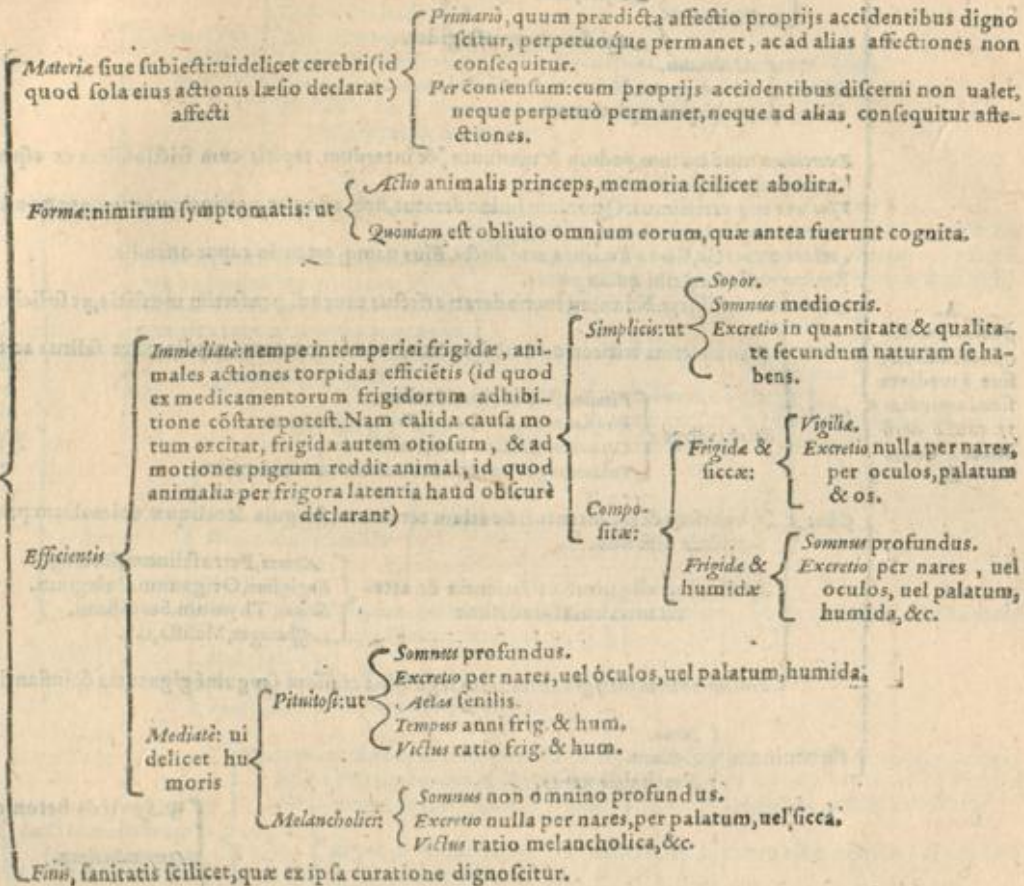 Primariò, quum prædicta affectio proprijs accidentibus digno
scitur, perpetuoque permanet, ac ad alias affectiones non
consequitur.
Materiæ siue subiecti: uidelicet cerebri (id
quod sola eius actionis læsio declarat)
affecti
Per consensum: cum proprijs accidentibus discerni non ualet,
neque perpetuò permanet, neque ad alias consequitur affe-
ctiones.
Actio animalis princeps, memoria scilicet abolita.
Formæ: nimirum symptomatis: ut
Quoniam est obliuio omnium eorum, quæ antea fuerunt cognita.
Efficientis
Immediatè: nempe intemperiei frigidæ, ani-
males actiones torpidas efficiẽtis (id quod
ex medicamentorum frigidorum adhibi-
tione cõstare potest. Nam calida causa mo
tum excitat, frigida autem otiosum, & ad
motiones pigrum reddit animal, id quod
animalia per frigora latentia haud obscurè
declarant)
Simplicis: ut
Sopor.
Somnus mediocris.
Excretio in quantitate & qualita-
te secundum naturam se ha-
bens.
Compo-
sitæ:
Frigidæ &
siccæ:
Vigiliæ.
Excretio nulla per nares,
per oculos, palatum
& os.
Frigidæ &
humidæ
Somnus profundus.
Excretio per nares, uel
oculos, uel palatum,
humida, &c.
Mediatè: ui
delicet hu-
moris
Pituitosi: ut
Somnus profundus.
Excretio per nares, uel óculos, uel palatum, humida.
Aetas senilis.
Tempus anni frig. & hum.
Victus ratio frig. & hum.
Melancholici:
Somnus non omnino profundus.
Excretio nulla per nares, per palatum, uel sicca.
Victus ratio melancholica, &c.
Finis, sanitatis scilicet, quæ ex ipsa curatione dignoscitur.